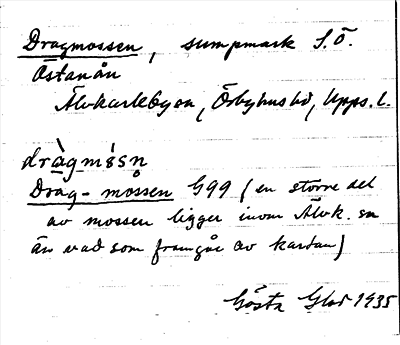 Dragmossen, sumpmark S.Ö.
Östanån
Älvkarleby sn, Örbyhus hd, Upps. l.
dràgmósn
Drag-mossen G99 (en större del
av mossen ligger inom Älvk. sn
än vad som framgår av kartan)
Gösta 1935